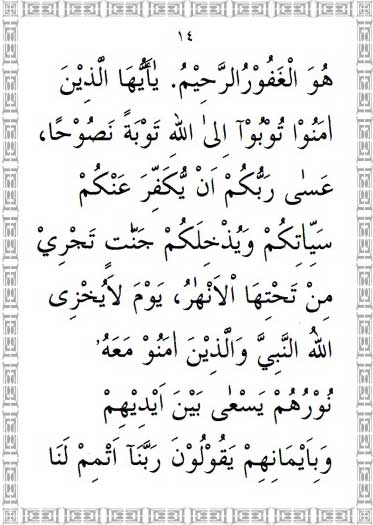 ١٤
هُوَ الْغَفُوْرُالرَّحِيْمُ. يٰاَيُّهَا الَّذِيْنَ
اٰمَنُوْا تُوْبُوْآ اِلىٰ اللهِ تَوْبَةً نَصُوْحًا،
عَسٰى رَبُّكُمْ اَنْ يُّكَفِّرَ عَنْكُمْ
سَيِّاٰتِكُمْ وَيُدْخِلَكُمْ جَنّٰتٍ تَجْرِيْ
مِنْ تَحْتِهَا اْلاَنْهٰرُ، يَوْمَ لاَيُخْزِى
اللهُ النَّبِيَّ وَالَّذِيْنَ اٰمَنُوْ مَعَهُ'
نُوْرُهُمْ يَسْعٰى بَيْنَ اَيْدِيْهِمْ
وَبِاَيْمَانِهِمْ يَقُوْلُوْنَ رَبَّنَآ اَتْمِمْ لَنَا